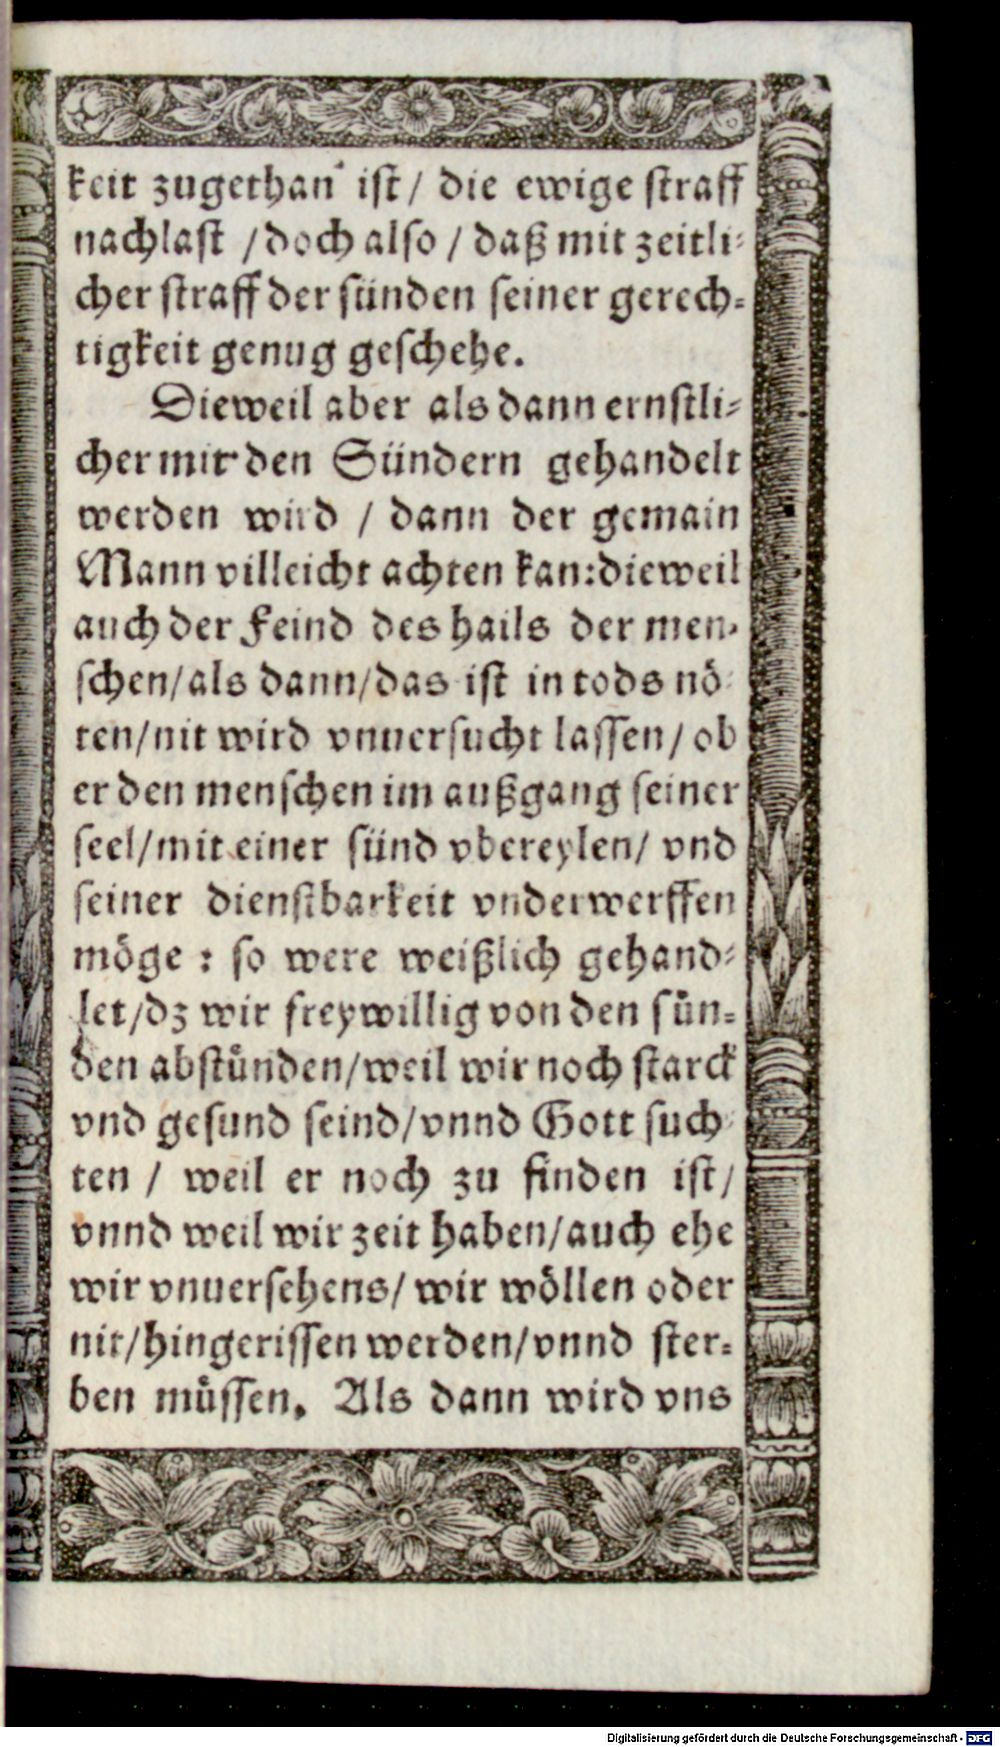 keit zugethan ist/ die ewige straff
nachlast /doch also / daß mit zeitli⸗
cher straff der sünden seiner gerech⸗
tigkeit genug geschehe.
Dieweil aber als dann ernstli⸗
cher mit den Sündern gehandelt
werden wird / dann der gemain
Mann villeicht achten kan:dieweil
auch der Feind des hails der men⸗
schen/als dann/das ist in tods nö⸗
ten/nit wird vnuersucht lassen/ ob
er den menschen im außgang seiner
seel/mit einer sünd vbereylen/ vnd
seiner dienstbarkeit vnderwerffen
möge : so were weißlich gehand⸗
let/dz wir freywillig von den sün⸗
den abstünden/weil wir noch starck
vnd gesund seind/vnnd Gott such⸗
ten / weil er noch zu finden ist/
vnnd weil wir zeit haben/auch ehe
wir vnuersehens/ wir wöllen oder
nit/hingerissen werden/vnnd ster⸗
ben müssen. Als dann wird vns
Digitalisierung gefördert durch die Deutsche Forschungsgemeinschaft - DFG